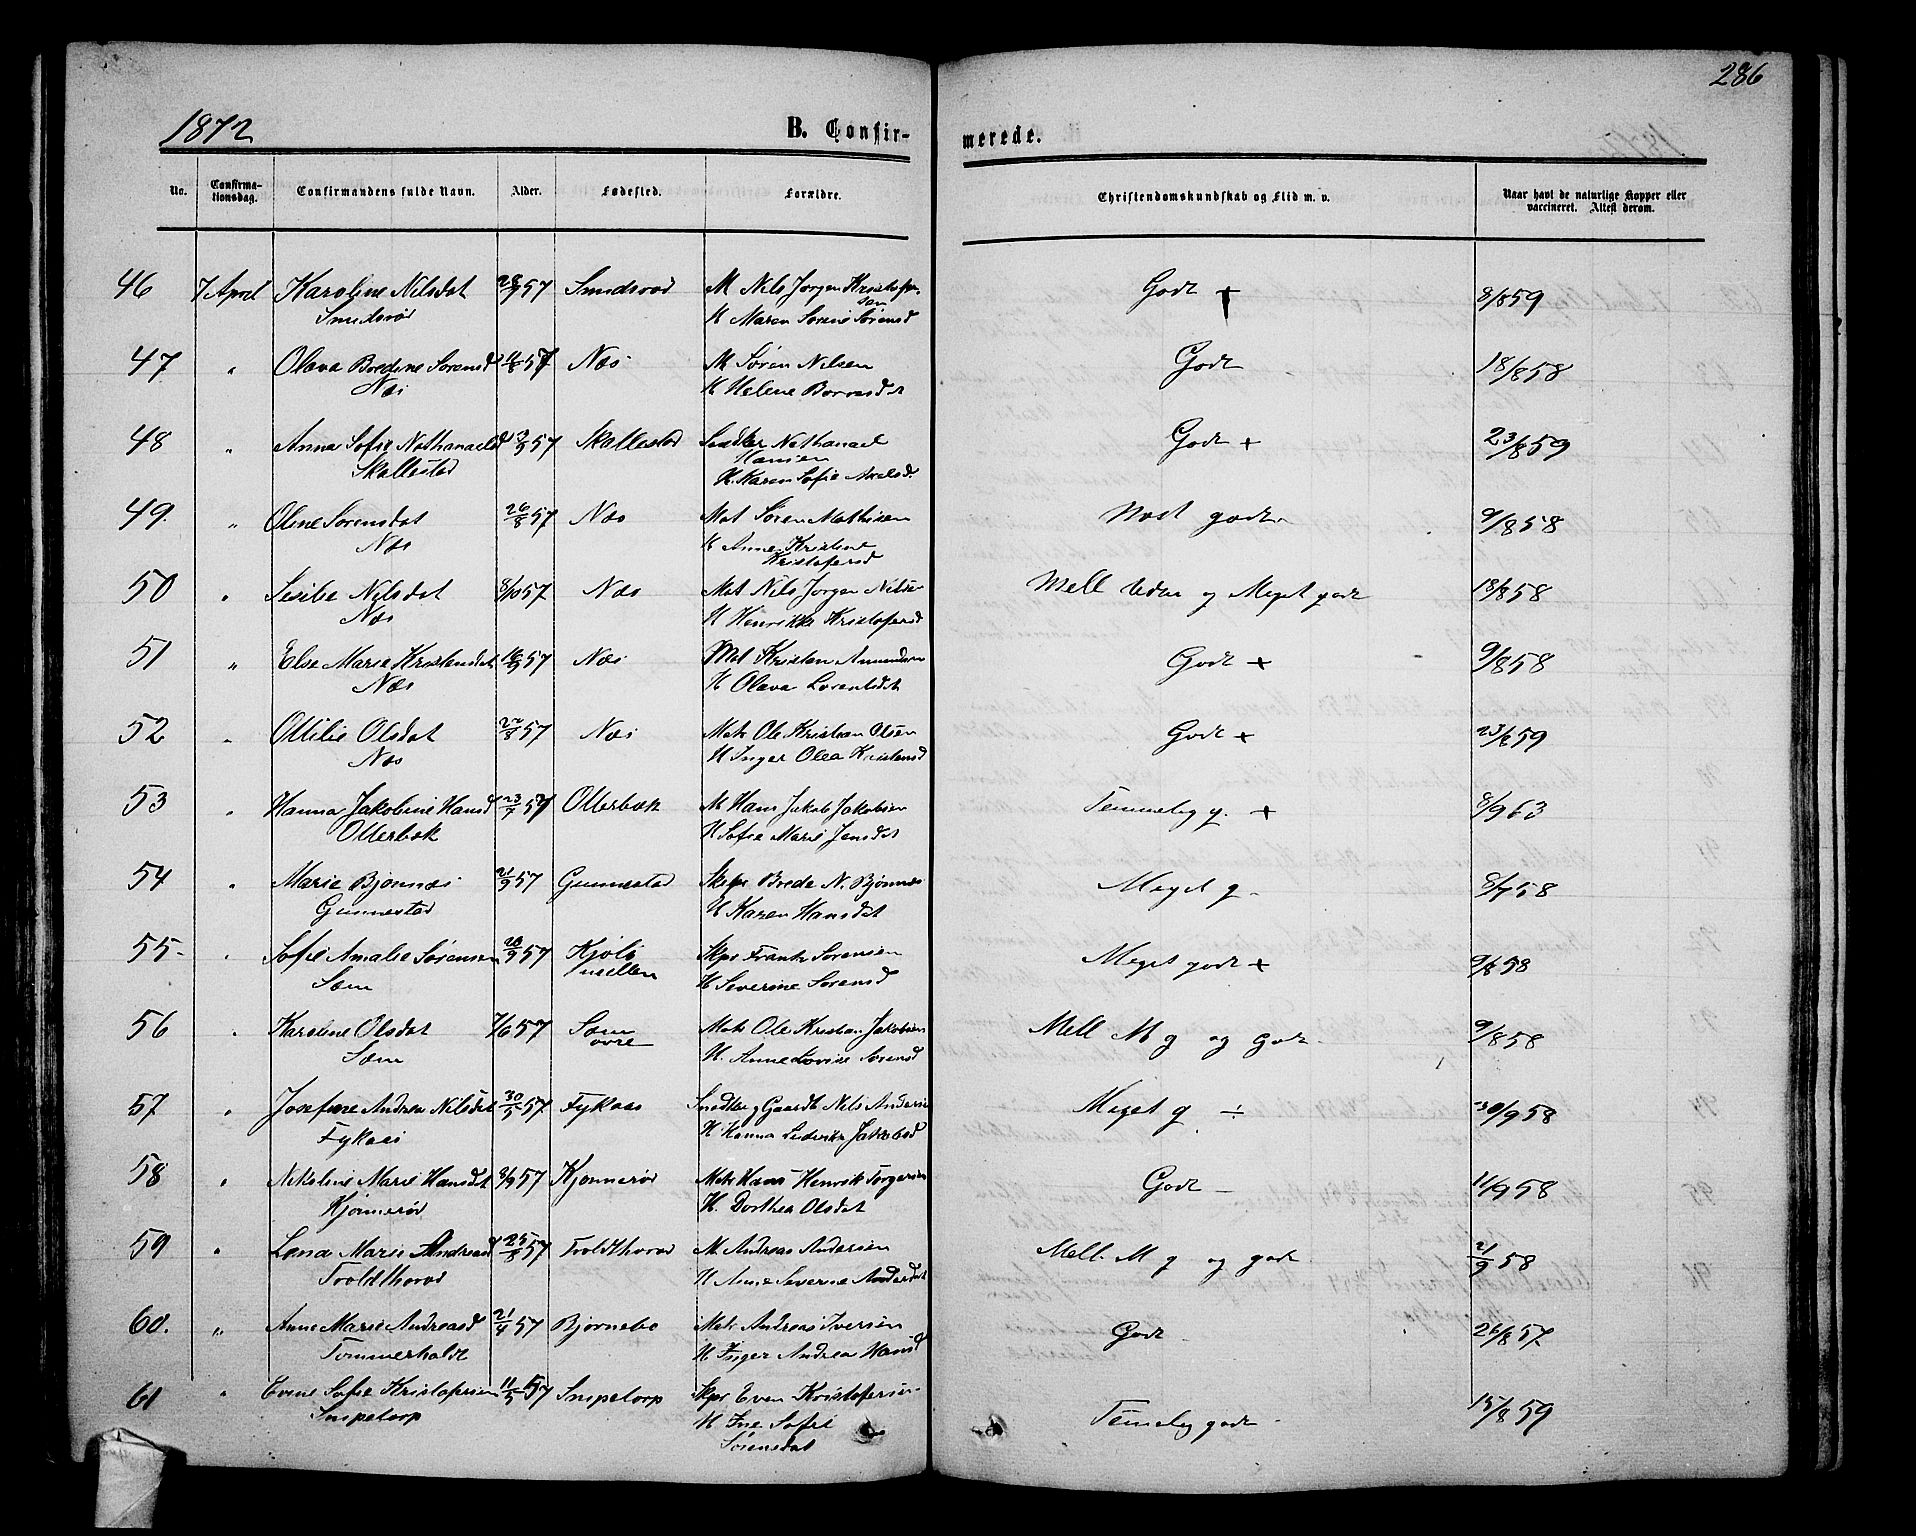 286
1872
B. Confir-
merede.
No.
Confirma-
tionsdag.
Confirmandens fulde Navn.
Alder.
Fødested.
Forældre.
Christendomskundskab og Flid m. v.
Naar havt de naturlige Kopper eller
vaccineret. Attest derom.
46 7 April Karoline Nilsdat 28/9 57 Smidsrød M Nils Jørgen Kristofer- Godt + 8/8 59
sen
Smidsrød H Maren Sørine Sørensd
47 " Olava Bredine Sørensd 57 Næs M Søren Nilsen Godt 18/8 58
Næs H Helene
48 " Anna Sofie Nathanaelsd 57 Skallestad Nathanael Godt + 23/8 59
Hansen
Skallestad H. Karen Sofie Axelsd.
49. " Oline Sørensdat 26/8 57 Næs Mat Søren Mathisen Næst godt 9/8 58
Næs H Anne Kristine
Kristofersd
50 " Sesilie Nilsdat 8/10 57 Næs Mat Nils Jørgen Nilsen Mell Udm og Meget godt 18/8 58
Næs H Henrikke Kristofersd
51 " Else Marie Kristensdat 16/9 57 Næs Mat Kristen Amundsen Godt + 9/8 58
Næs H Olava Lorentsdat
52 " Ottilie Olsdat 57 Næs Mat Ole Kristian Olsen Godt + 23/8 59
Næs H Inger Olea Kristensd
53 " Hanna Jakobine Hansd 23/7 57 Otterbæk M Hans Jakob Jakobsen Temmelig g. + 8/9 63
Otterbæk H Sofie Marie Jensdat
54 " Marie Bjønnæs 21/9 57 Gunnestad Skpr Brede N. Bjønnæs Meget g. 8/7 58
Gunnestad H Karen Hansdat
55 " Sofie Amalie Sørensen 57 Kjøle Skpr Frantz Sørensen Meget godt + 9/8 58
Sæm H Severine Sørensd
56 " Karoline Olsdat 7/6 57 Sæm Mat Ole Kristian Jakobsen Mell M g og godt 9/8 58
øvre
Sæm H. Anne Lovise Sørensd
57 " Josefine Andrea Nilsdat 30/5 57 Fykaas Snedker g Gaardb Nils Andersen Meget g ÷ 30/9 58
Fykaas H Hanna Ludvike Jakobsd
58 " Nikoline Marie Hansdat 9/9 57 Kjønnerød Mat Hans Henrik Torgersen Godt - 11/9 58
Kjønnerød H. Dorthea Olsdat
59 " Lena Marie Andreasd 25/8 57 Troldthorød M Andreas Andersen Mell. M g og godt. 21/9 58
Troldthorød H Anne Severine Andersdat
60. " Anne Marie Andreasd 21/4 57 Bjørnebo Mat Andreas Iversen Godt 26/8 57
Tømmerholdt H Inger Andrea Hansd
61 " Evine Sofie Kristofersen 11/5 57 Snipetorp Skpr Even Kristofersen Temelig godt 15/8 59
Snipetorp H Ine Sofie
Sørensdat